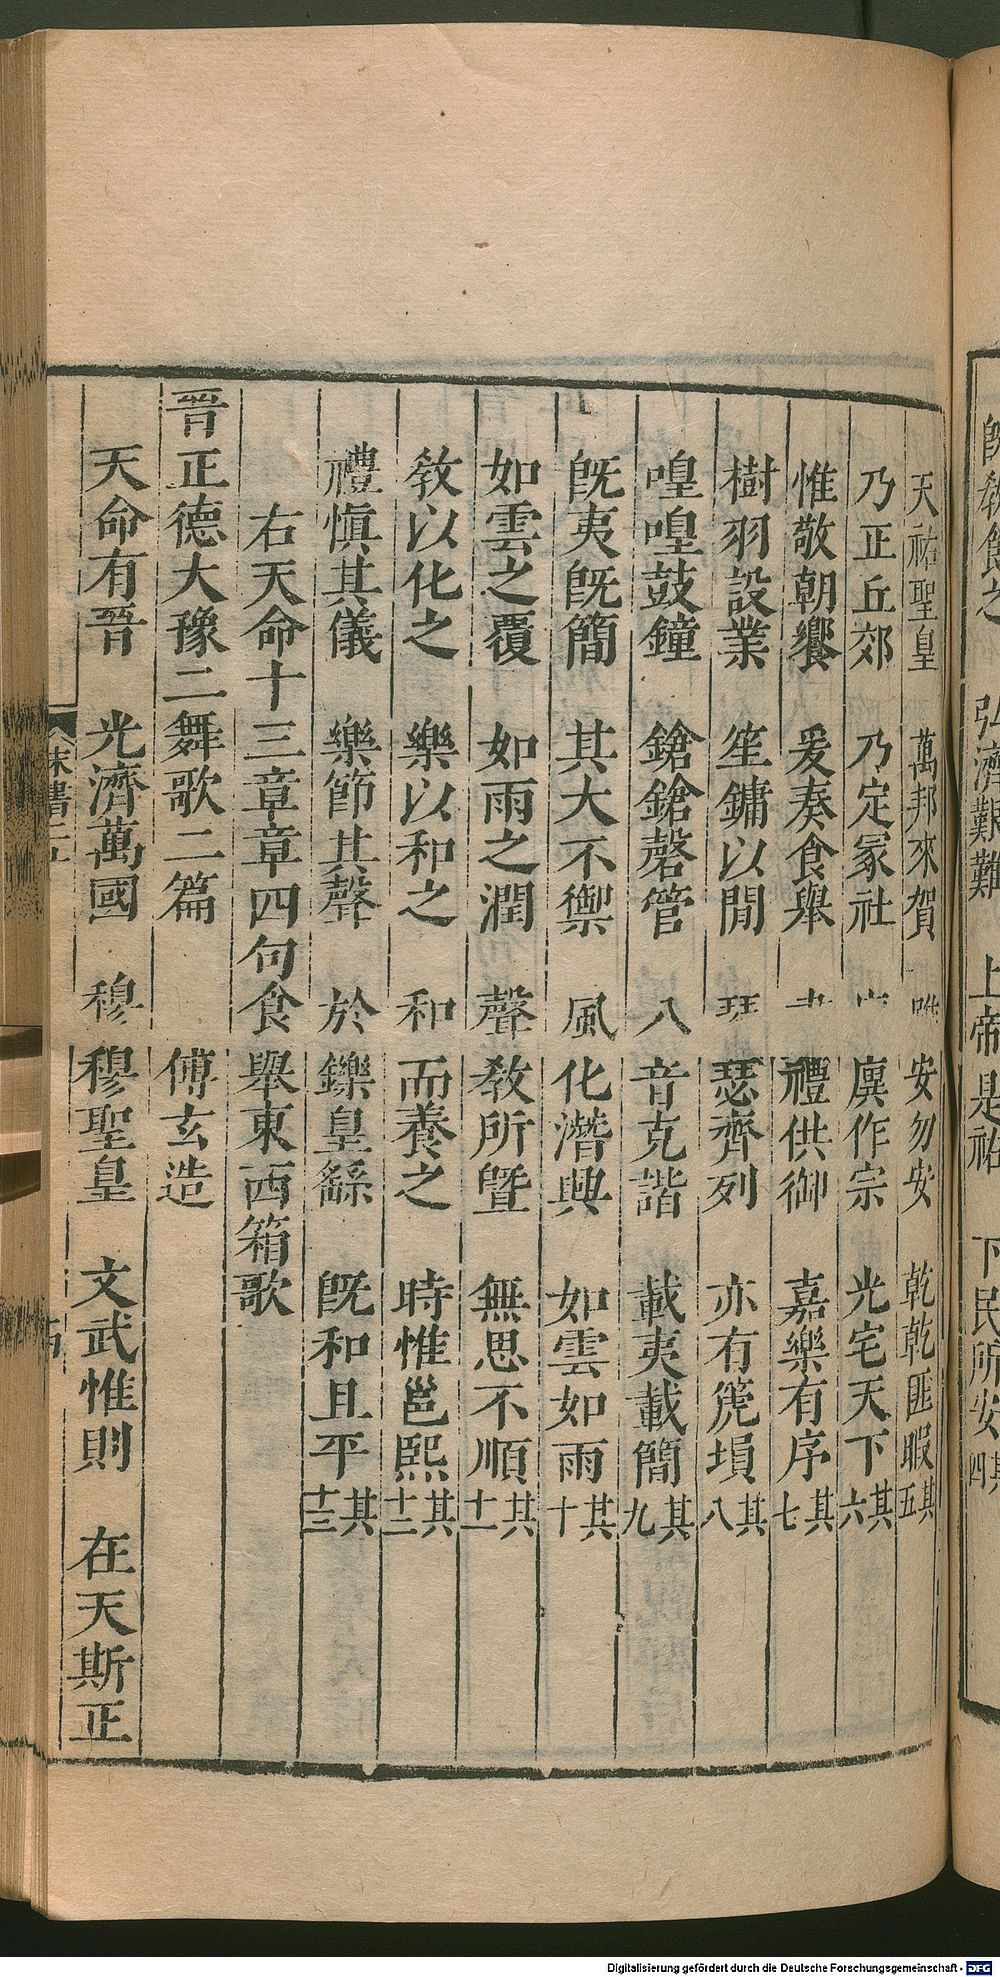 旣敎食之　弘濟艱難　上帝是祐　下民所安其四
天祐聖皇　萬邦來賀　安勿安　乾乾匪暇其五
乃正丘郊　乃定冢社　廙作宗　光宅天下其六
惟敬朝饗　爰奏食舉　禮供御　嘉樂有序其七
樹羽設業　笙鏞以閒　瑟齊列　亦有篪塤其八
喤喤鼓鐘　鎗鎗磬管　八音克諧　載夷載簡其九
旣夷旣簡　其大不禦　風化潛興　如雲如雨其十
如雲之覆　如雨之潤　聲敎所曁　無思不順其十一
敎以化之　樂以和之　和而養之　時惟邕熙其十二
禮愼其儀　樂節其聲　於鑠皇繇　旣和且平其十三
右天命十三章章四句食舉東西箱歌
晉正德大豫二舞歌二篇　傅玄造
天命有晉　光濟萬國　穆穆聖皇　文武惟則　在天斯正
Digitalisierung gefördert durch die Deutsche Forschungsgemeinschaft - DFG